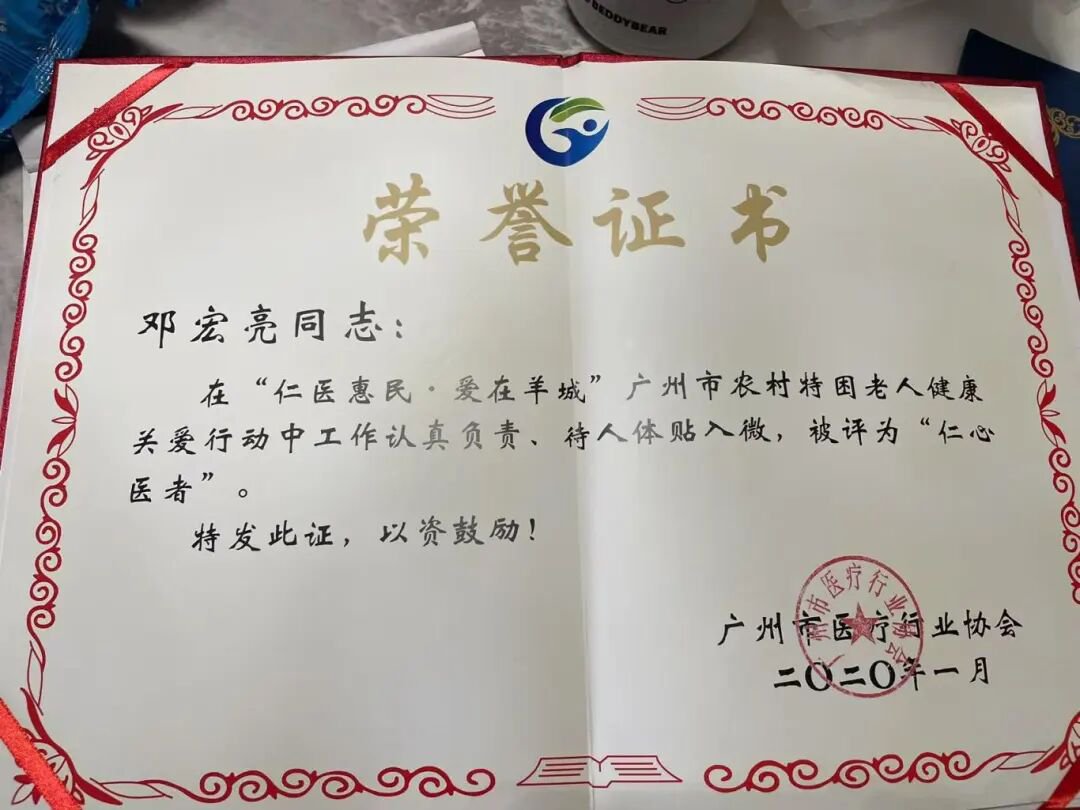 BEDDYBEAR
荣誉证书
邓宏亮同志：
在“仁医惠民·爱在羊城”广州市农村特困老人健康
关爱行动中工作认真负责、待人体贴入微，被评为“仁心
医者”。
特发此证，以资鼓励！
广州市医疗行业协会
二〇二〇年一月